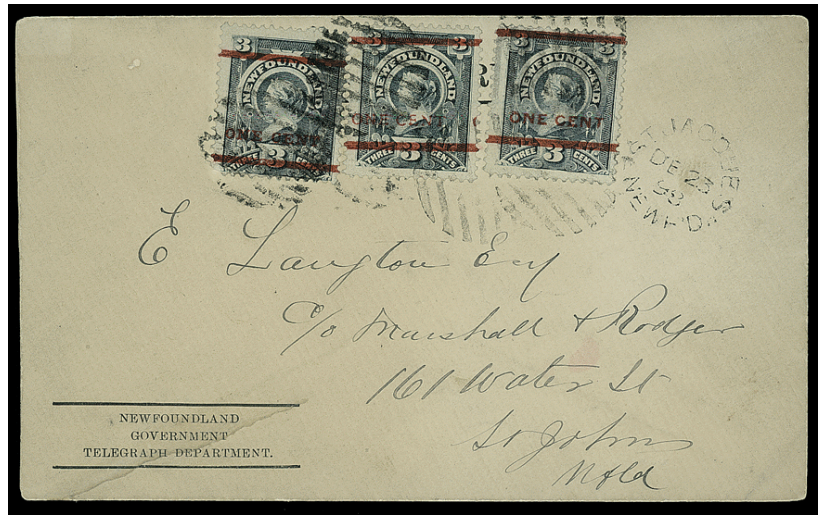 3 3
NEWFOUNDLAND
ONE CENT
3
THREE CENTS
3 3
NEWFOUNDLAND
ONE CENT
3
THREE CENTS
3 3
NEWFOUNDLAND
ONE CENT
3
THREE CENTS
ST. JACQUES
DE 23
98
NEWF'D.
E Langton Esq
c/o Marshall & Rodger
161 Water St
St Johns
Nfld
NEWFOUNDLAND
GOVERNMENT
TELEGRAPH DEPARTMENT.